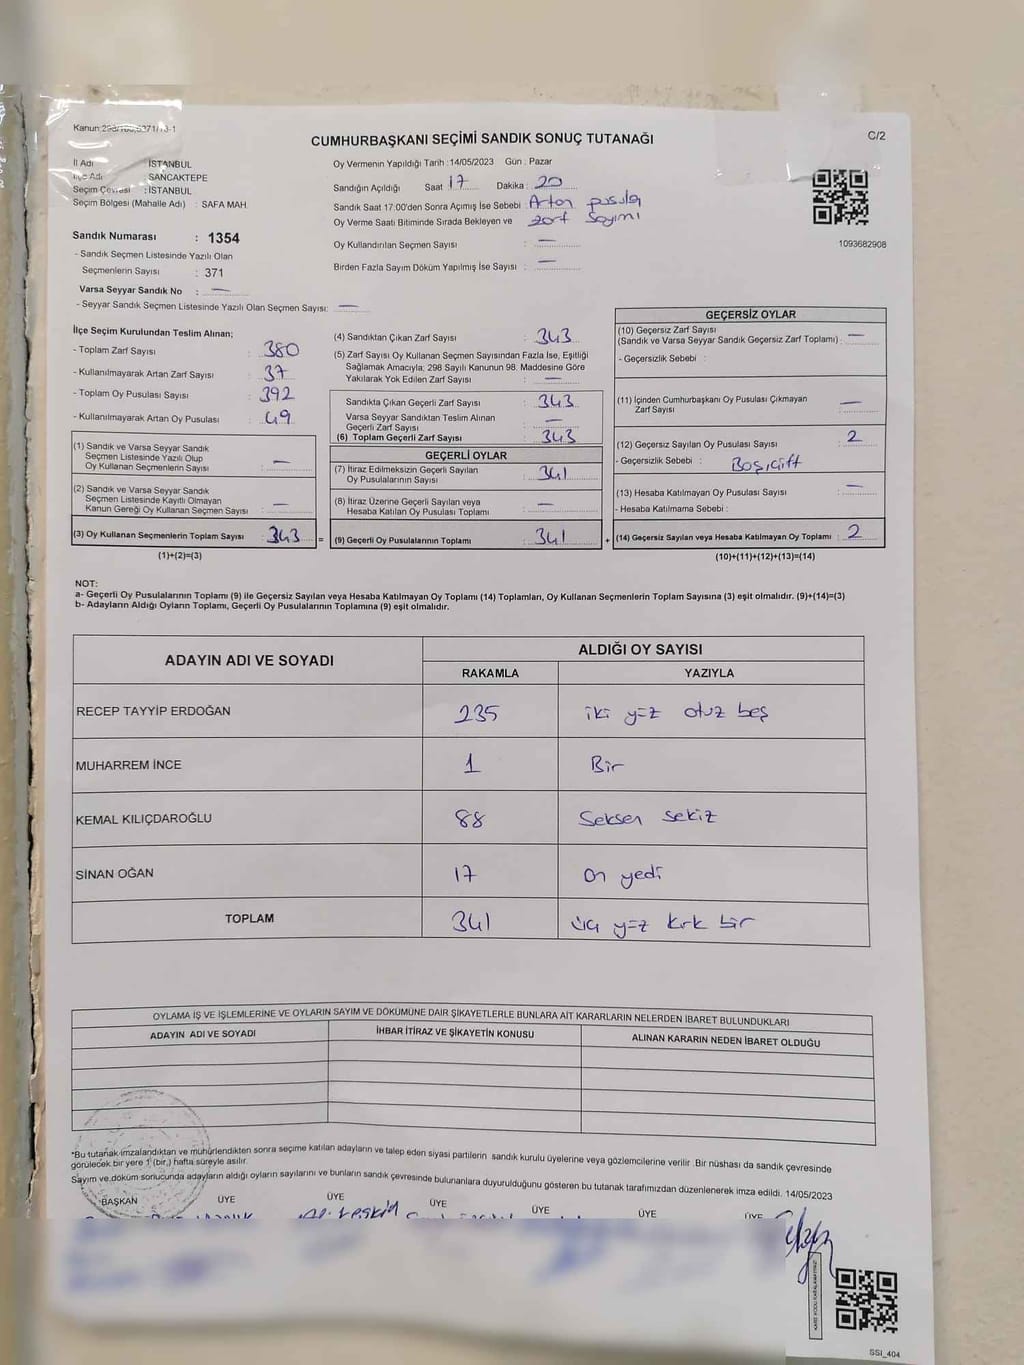 Kanun:298/105,6271/13-1
CUMHURBAŞKANI SEÇİMİ SANDIK SONUÇ TUTANAĞI
C/2
İl Adı : İSTANBUL
İlçe Adı : SANCAKTEPE
Seçim Çevresi : İSTANBUL
Seçim Bölgesi (Mahalle Adı) : SAFA MAH.
Oy Vermenin Yapıldığı Tarih :14/05/2023 Gün : Pazar
Sandığın Açıldığı Saat 17 Dakika : 20
Sandık Saat 17:00'den Sonra Açımış İse Sebebi : Artan pusula
Oy Verme Saati Bitiminde Sırada Bekleyen ve zarf sayımı
Oy Kullandırılan Seçmen Sayısı : —
Birden Fazla Sayım Döküm Yapılmış İse Sayısı : —
1093682908
Sandık Numarası : 1354
- Sandık Seçmen Listesinde Yazılı Olan
Seçmenlerin Sayısı : 371
Varsa Seyyar Sandık No : —
- Seyyar Sandık Seçmen Listesinde Yazılı Olan Seçmen Sayısı: —
İlçe Seçim Kurulundan Teslim Alınan;
- Toplam Zarf Sayısı : 380
- Kullanılmayarak Artan Zarf Sayısı : 37
- Toplam Oy Pusulası Sayısı : 392
- Kullanılmayarak Artan Oy Pusulası : 49
(1) Sandık ve Varsa Seyyar Sandık
Seçmen Listesinde Yazılı Olup
Oy Kullanan Seçmenlerin Sayısı : —
(2) Sandık ve Varsa Seyyar Sandık
Seçmen Listesinde Kayıtlı Olmayan
Kanun Gereği Oy Kullanan Seçmen Sayısı : —
(3) Oy Kullanan Seçmenlerin Toplam Sayısı : 343 =
(1)+(2)=(3)
(4) Sandıktan Çıkan Zarf Sayısı : 343
(5) Zarf Sayısı Oy Kullanan Seçmen Sayısından Fazla İse, Eşitliği
Sağlamak Amacıyla; 298 Sayılı Kanunun 98. Maddesine Göre
Yakılarak Yok Edilen Zarf Sayısı : —
Sandıkta Çıkan Geçerli Zarf Sayısı : 343
Varsa Seyyar Sandıktan Teslim Alınan
Geçerli Zarf Sayısı : —
(6) Toplam Geçerli Zarf Sayısı : 343
GEÇERLİ OYLAR
(7) İtiraz Edilmeksizin Geçerli Sayılan
Oy Pusulalarının Sayısı : 341
(8) İtiraz Üzerine Geçerli Sayılan veya
Hesaba Katılan Oy Pusulası Toplamı : —
(9) Geçerli Oy Pusulalarının Toplamı : 341 +
GEÇERSİZ OYLAR
(10) Geçersiz Zarf Sayısı
(Sandık ve Varsa Seyyar Sandık Geçersiz Zarf Toplamı) : —
- Geçersizlik Sebebi :
(11) İçinden Cumhurbaşkanı Oy Pusulası Çıkmayan
Zarf Sayısı : —
(12) Geçersiz Sayılan Oy Pusulası Sayısı : 2
- Geçersizlik Sebebi : Boş, çift
(13) Hesaba Katılmayan Oy Pusulası Sayısı : —
- Hesaba Katılmama Sebebi :
(14) Geçersiz Sayılan veya Hesaba Katılmayan Oy Toplamı : 2
(10)+(11)+(12)+(13)=(14)
NOT:
a- Geçerli Oy Pusulalarının Toplamı (9) ile Geçersiz Sayılan veya Hesaba Katılmayan Oy Toplamı (14) Toplamları, Oy Kullanan Seçmenlerin Toplam Sayısına (3) eşit olmalıdır. (9)+(14)=(3)
b- Adayların Aldığı Oyların Toplamı, Geçerli Oy Pusulalarının Toplamına (9) eşit olmalıdır.
ADAYIN ADI VE SOYADI
ALDIĞI OY SAYISI
RAKAMLA YAZIYLA
RECEP TAYYİP ERDOĞAN 235 iki yüz otuz beş
MUHARREM İNCE 1 Bir
KEMAL KILIÇDAROĞLU 88 Seksen sekiz
SİNAN OĞAN 17 on yedi
TOPLAM 341 üç yüz kırk bir
OYLAMA İŞ VE İŞLEMLERİNE VE OYLARIN SAYIM VE DÖKÜMÜNE DAİR ŞİKAYETLERLE BUNLARA AİT KARARLARIN NELERDEN İBARET BULUNDUKLARI
ADAYIN ADI VE SOYADI İHBAR İTİRAZ VE ŞİKAYETİN KONUSU ALINAN KARARIN NEDEN İBARET OLDUĞU
*Bu tutanak imzalandıktan ve mühürlendikten sonra seçime katılan adayların ve talep eden siyasi partilerin sandık kurulu üyelerine veya gözlemcilerine verilir .Bir nüshası da sandık çevresinde
görülecek bir yere 1 (bir ) hafta süreyle asılır.
Sayım ve döküm sonucunda adayların aldığı oyların sayılarını ve bunların sandık çevresinde bulunanlara duyurulduğunu gösteren bu tutanak tarafımızdan düzenlenerek imza edildi. 14/05/2023
BAŞKAN ÜYE ÜYE ÜYE ÜYE ÜYE ÜYE
SSI_404